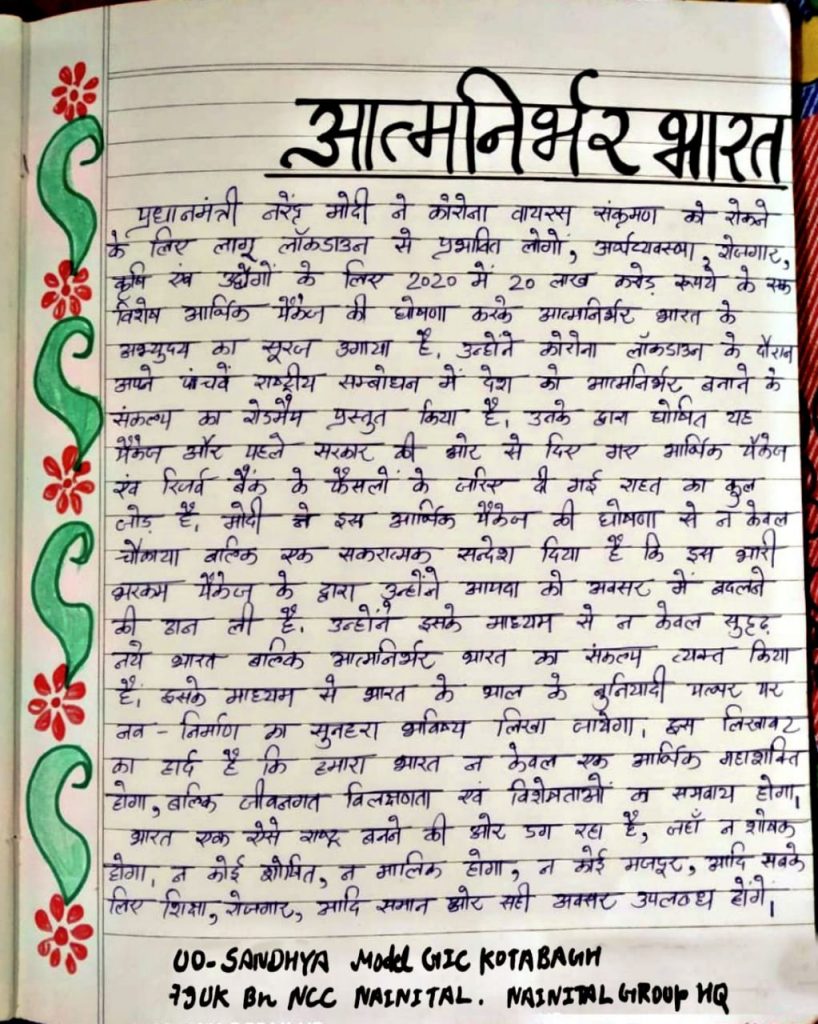 आत्मनिर्भर भारत
प्रधानमंत्री नरेंद्र मोदी ने कोरोना वायरस संक्रमण को रोकने
के लिए लागू लॉकडाउन से प्रभावित लोगों, अर्थव्यवस्था, रोजगार,
कृषि एवं उद्योगों के लिए 2020 में 20 लाख करोड़ रूपये के एक
विशेष आर्थिक पैकेज की घोषणा करके आत्मनिर्भर भारत के
अभ्युदय का सूरज उगाया है, उन्होंने कोरोना लॉकडाउन के दौरान
अपने पांचवें राष्ट्रीय सम्बोधन में देश को आत्मनिर्भर बनाने के
संकल्प का रोडमैप प्रस्तुत किया है, उनके द्वारा घोषित यह
पैकेज और पहले सरकार की ओर से दिए गए आर्थिक पैकेज
एवं रिजर्व बैंक के फैसलों के जरिए दी गई राहत का कुल
जोड़ है, मोदी ने इस आर्थिक पैकेज की घोषणा से न केवल
चौंकाया बल्कि एक सकरात्मक सन्देश दिया है कि इस भारी
भरकम पैकेज के द्वारा उन्होंने आपदा को अवसर में बदलने
की ठान ली है, उन्होंने इसके माध्यम से न केवल सुदृढ़
नये भारत बल्कि आत्मनिर्भर भारत का संकल्प व्यक्त किया
है, इसके माध्यम से भारत के भाल के बुनियादी पत्थर पर
नव - निर्माण का सुनहरा भविष्य लिखा जायेगा, इस लिखावट
का हार्द है कि हमारा भारत न केवल एक आर्थिक महाशक्ति
होगा, बल्कि जीवनगत विलक्षणता एवं विशेषताओं का समवाय होगा,
भारत एक ऐसे राष्ट्र बनने की ओर डग रहा है, जहाँ न शोषक
होगा, न कोई शोषित, न मालिक होगा, न कोई मजदूर, आदि सबके
लिए शिक्षा, रोजगार, आदि समान और सही अवसर उपलब्ध होंगे,
UO- SANDHYA Model GIC KOTABAGH
79UK Bn NCC NAINITAL. NAINITAL GROUP HQ